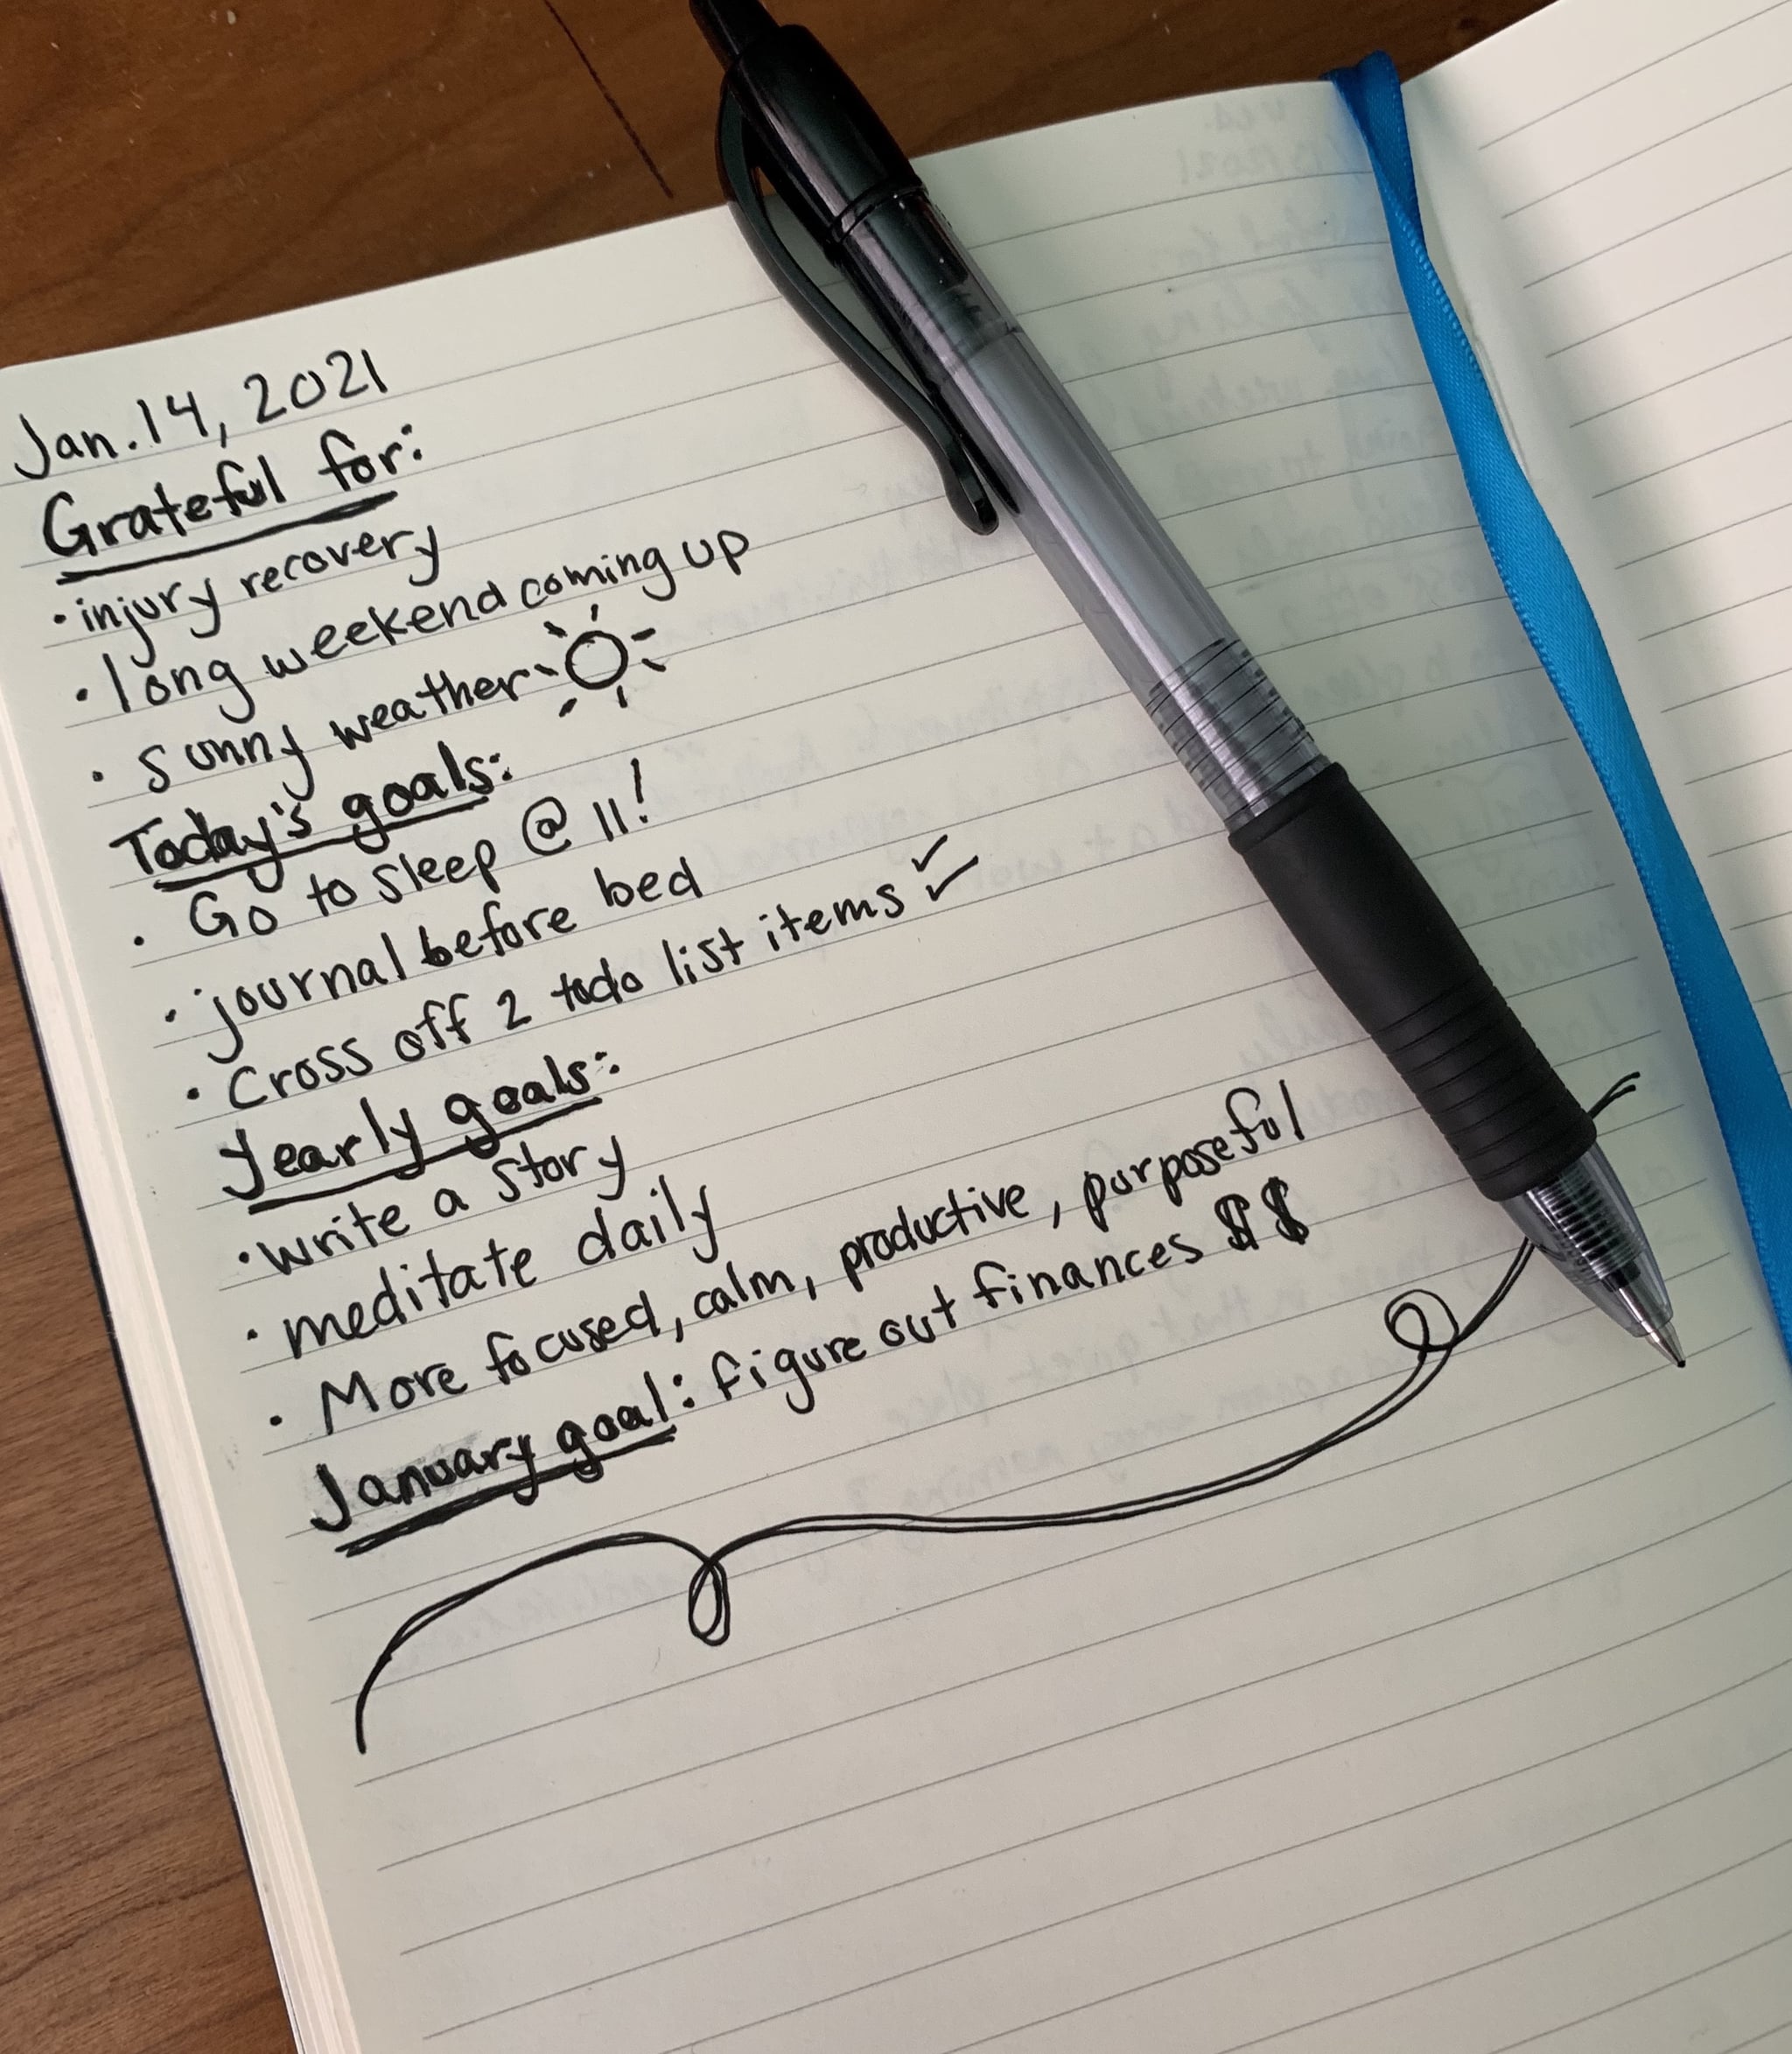 Jan. 14, 2021
Grateful for:
• injury recovery
• long weekend coming up
• sunny weather
Today's goals:
• Go to sleep @ 11!
• journal before bed
• Cross off 2 todo list items ✓✓
Yearly goals:
• write a story
• meditate daily
• More focused, calm, productive, purposeful
January goal: figure out finances $$